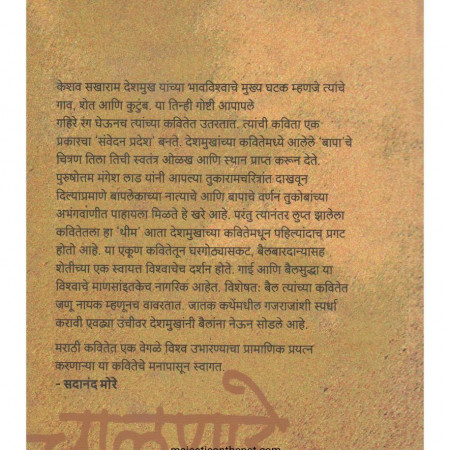 केशव सखाराम देशमुख यांच्या भावविश्वाचे मुख्य घटक म्हणजे त्यांचे
गाव, शेत आणि कुटुंब. या तिन्ही गोष्टी आपापले
गहिरे रंग घेऊनच त्यांच्या कवितेत उतरतात. त्यांची कविता एक
प्रकारचा 'संवेदन प्रदेश' बनते. देशमुखांच्या कवितेमध्ये आलेले 'बापा'चे
चित्रण तिला तिची स्वतंत्र ओळख आणि स्थान प्राप्त करून देते.
पुरुषोत्तम मंगेश लाड यांनी आपल्या तुकारामचरित्रांत दाखवून
दिल्याप्रमाणे बापलेकाच्या नात्याचे आणि बापाचे वर्णन तुकोबांच्या
अभंगवाणीत पाहायला मिळते हे खरे आहे. परंतु त्यानंतर लुप्त झालेला
कवितेतला हा 'थीम' आता देशमुखांच्या कवितेमधून पहिल्यांदाच प्रगट
होतो आहे. या एकूण कवितेतून घरगोठ्यासकट, बैलबारदान्यासह
शेतीच्या एक स्वायत्त विश्वाचेच दर्शन होते. गाई आणि बैलसुद्धा या
विश्वाचे माणसांइतकेच नागरिक आहेत. विशेषतः बैल त्यांच्या कवितेत
जणू नायक म्हणूनच वावरतात. जातक कथेंमधील गजराजांशी स्पर्धा
करावी एवढ्या उंचीवर देशमुखांनी बैलांना नेऊन सोडले आहे.
मराठी कवितेत एक वेगळे विश्व उभारण्याचा प्रामाणिक प्रयत्न
करणाऱ्या या कवितेचे मनापासून स्वागत.
- सदानंद मोरे
majesticonthenet.com